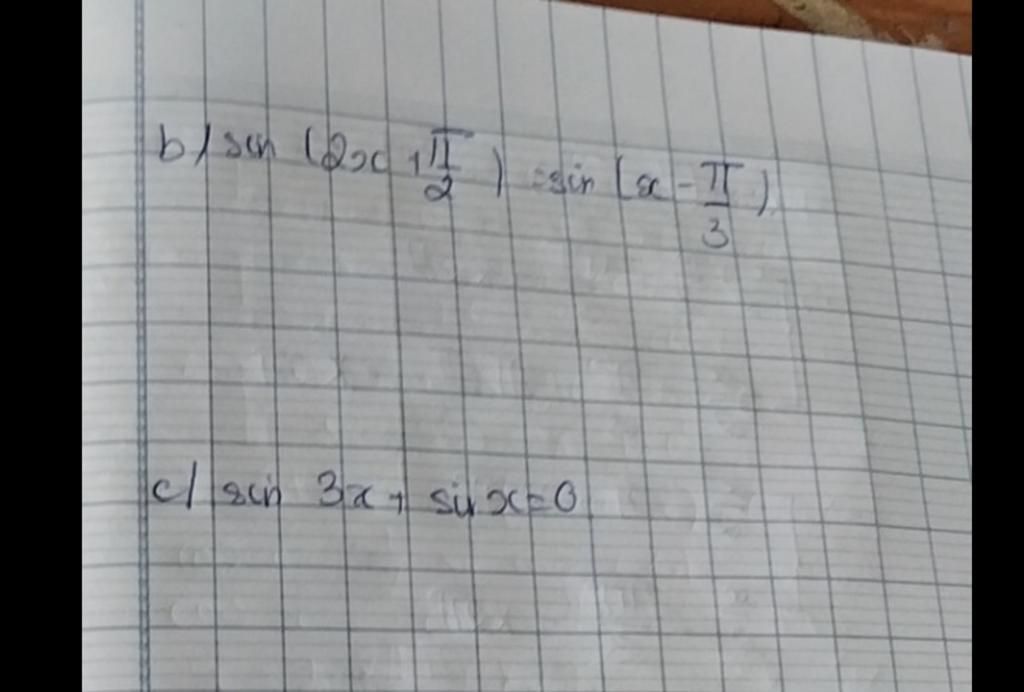 b/ sin (2x + π/2) = sin (x - π/3)
c/ sin 3x + sin x = 0